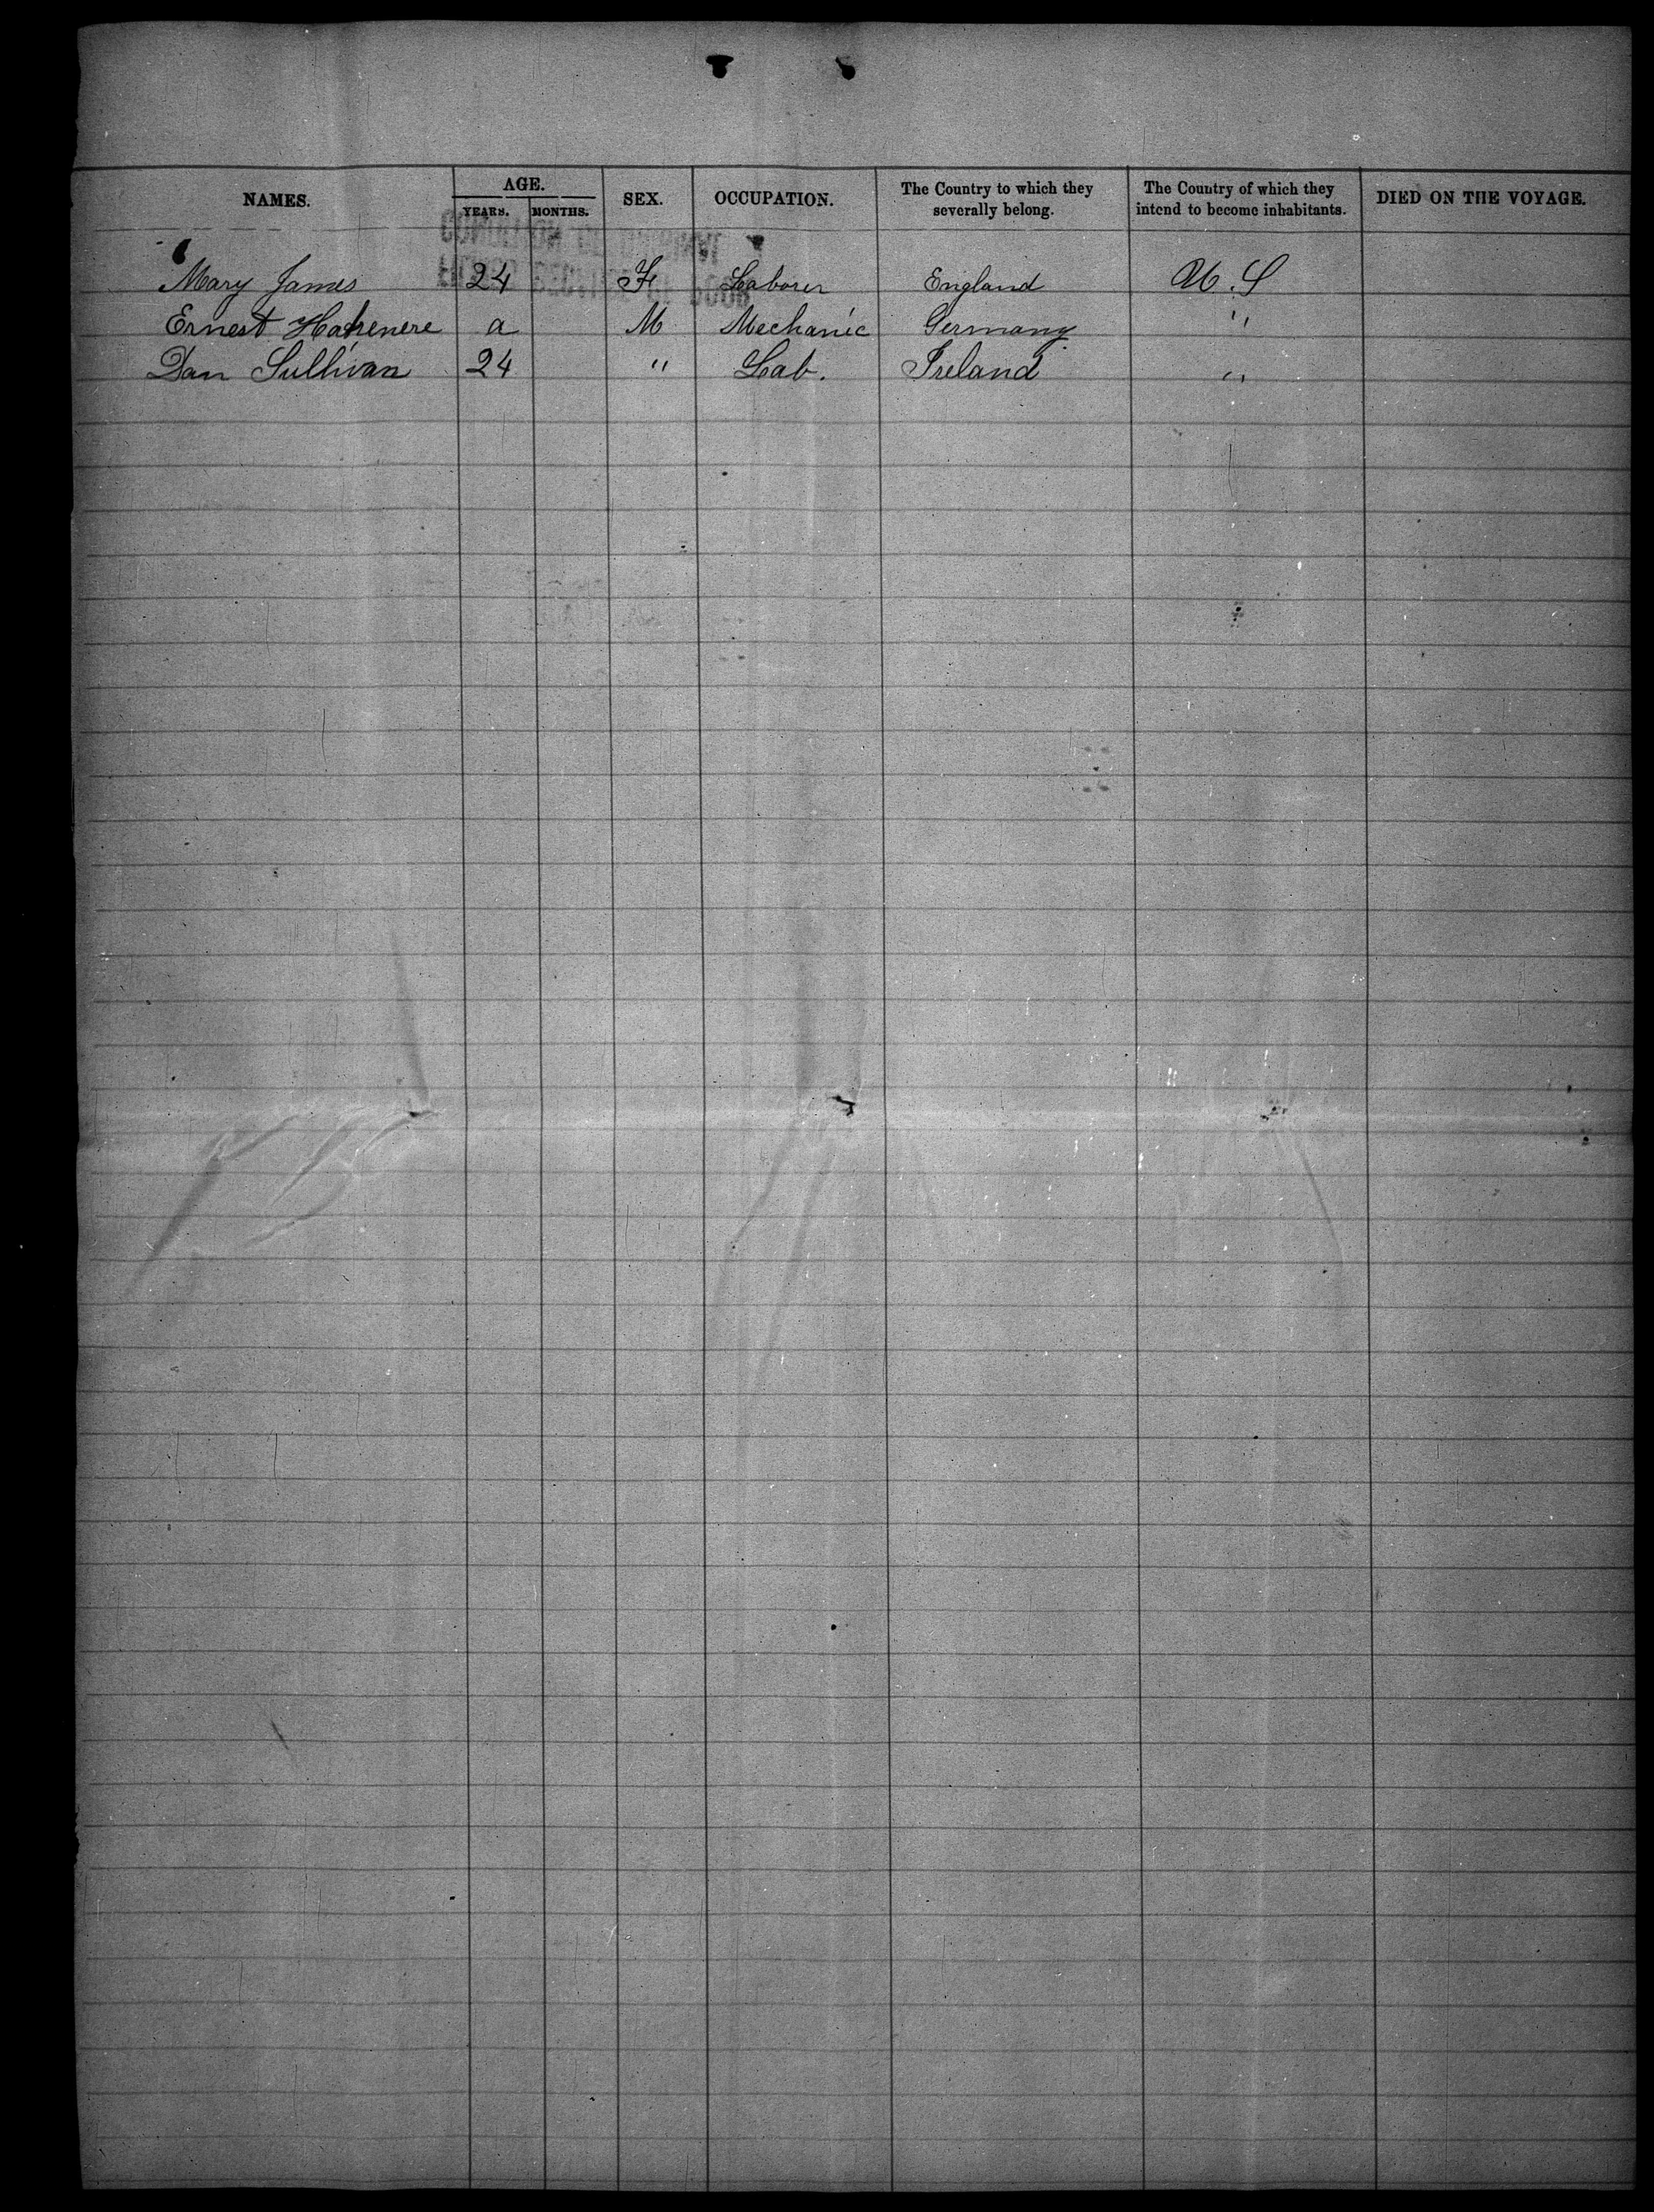 NAMES. AGE. SEX. OCCUPATION. The Country to which they severally belong. The Country of which they intend to become inhabitants. DIED ON THE VOYAGE.
YEARS. MONTHS.
Mary James 24 F Laborer England U.S
Ernest a M Mechanic Germany "
Dan Sullivan 24 " Lab. Ireland "